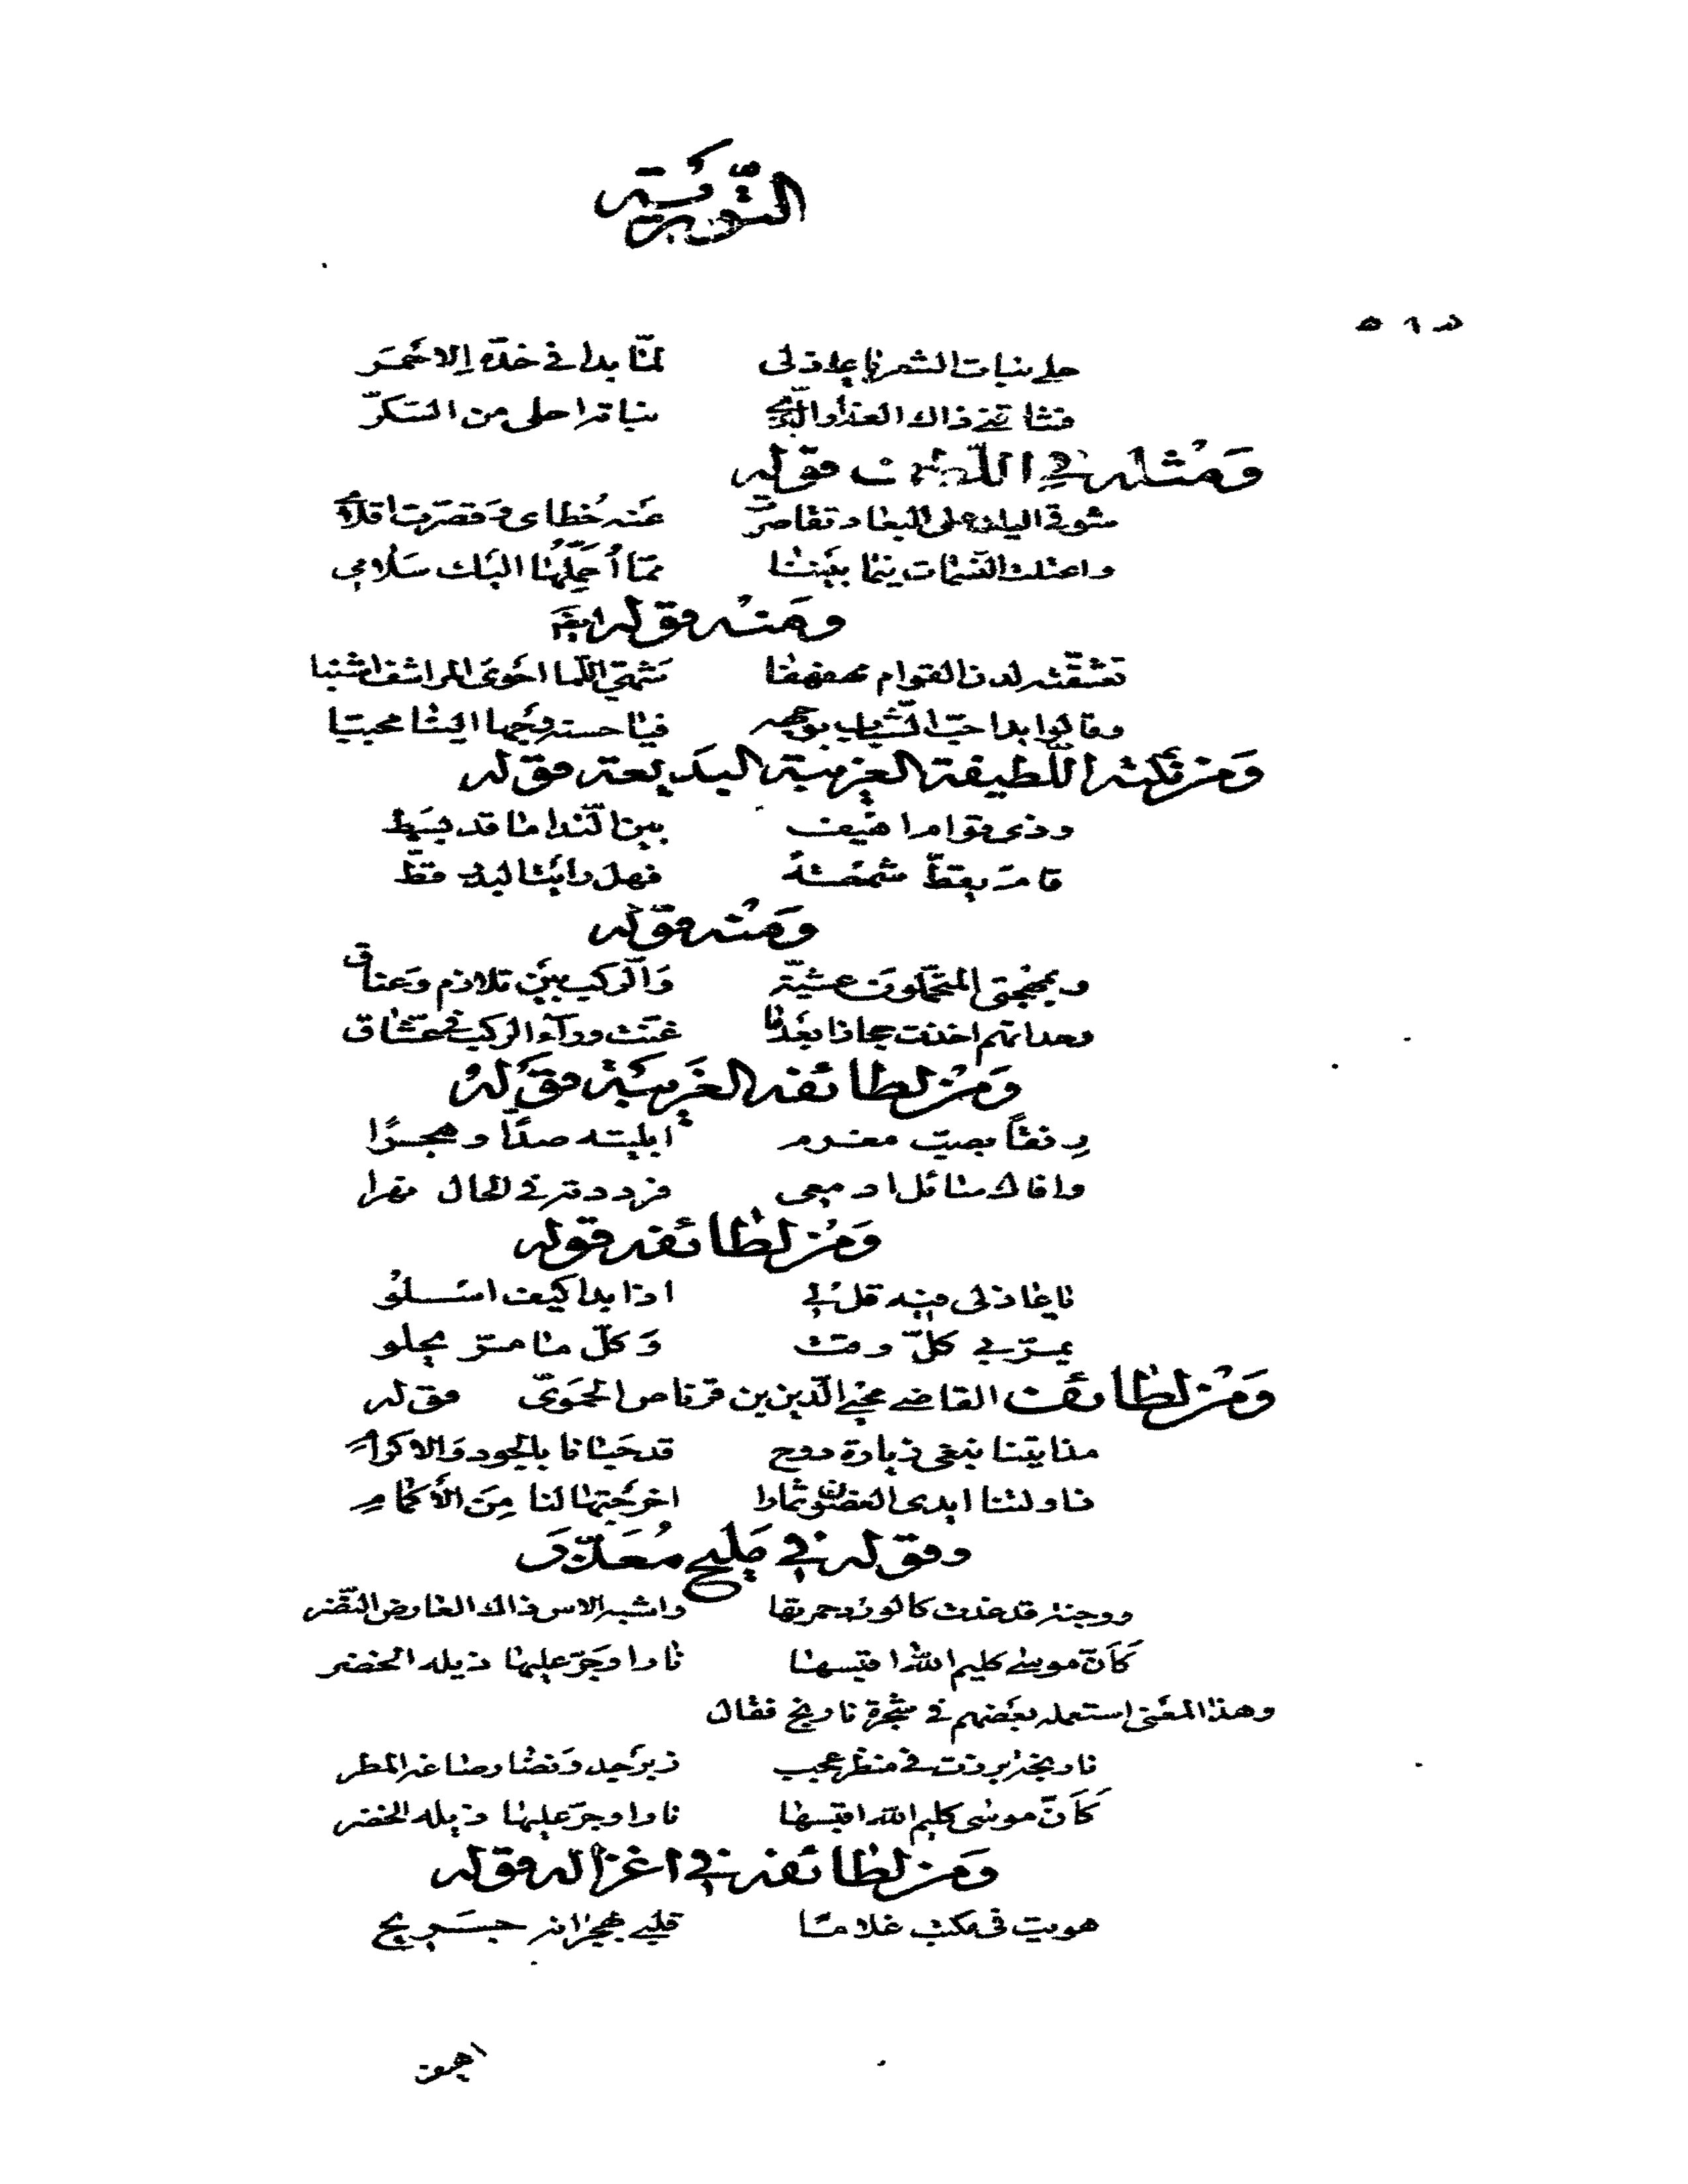 التورية
حلا نبات الشعر يا عاذلى لمّا بدا فى خدّه الاحمر
فشاقنى ذاك العذار الذى نباته احلى من السّكّر
ومثله فى قوله
شوقى اليك على البعاد تقاصرت عنه خطاى وقصّرت اقلامى
واعتلت النسمات فيما بيننا ممّا احمّلها اليك سلامى
ومنه قوله ايضا
تعشّقته لدن القوام مهفهفا شهىّ اللّما احوى المراشف اشنبا
وقالوا بدا حبّ الشّباب بوجهه فيا حسنه وجها الينا محببا
ومن نكته اللّطيفة الغريبة البديعة قوله
وذى قوام اهيف بين النّداما قد بسط
قام يقطّ شمعة فهل رايت البدر قطّ
ومنه قوله
وبمهجتى المتحمّلون عشيّة والرّكب بين تلازم وعناق
وحداتهم اخذت حجازا بعدما غنّت وراء الركب فى عشّاق
ومن لطائفه الغريبة قوله
رفقًا بصبّ مغرم ابليته صدًّا وهجرًا
وافاك سائل ادمعى فرددته فى الحال نهرا
ومن لطائفه قوله
يا عاذلى فيه قل لى اذا بدا كيف اسلو
يمرّ بى كلّ وقت وكلّ ما مرّ يحلو
ومن لطائف القاضى محيى الدّين بن قرناص الحموىّ قوله
مذ اتينا نبغى زيارة دوح قد حبانا بالجود والاكرام
ناولتنا ايدى الغصون ثمارا اخرجتها لنا من الأكمام
وقوله فى مليح معذّر
ووجنة قد غدت كالورد حمرتها واشبه الاس ذاك العارض النّضر
كأنّ موسى كليم الله اقتبسها نارا وجرّ عليها ذيله الخضر
وهذا المعنى استعمله بعضهم فى شجرة نارنج فقال
نارنجة برزت فى منظر عجيب زبرجد ونضار صاغه المطر
كأنّ موسى كليم الله اقتبسها نارا وجرّ عليها ذيله الخضر
ومن لطائفه فى اغزاله قوله
هويت فى مكتب غلاما قلبى بهجرانه جريح